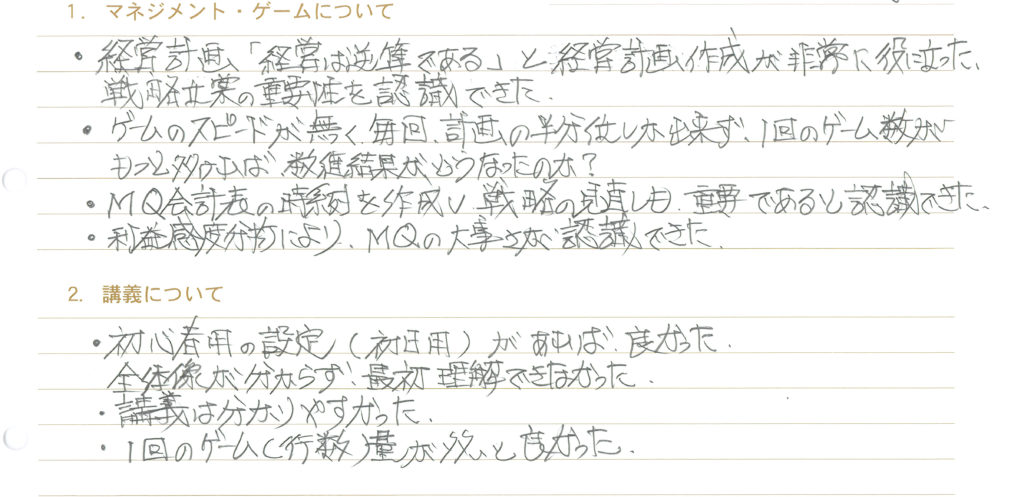 1. マネジメント・ゲームについて
・経営計画、「経営は逆算である」と経営計画作成が非常に役に立った、
戦略立案の重要性を認識できた.
・ゲームのスピードが無く、毎回、計画の半分位しか出来ず、1回のゲーム数が
もっと多ければ、数進結果がどうなったのか?
・MQ会計表の時系列を作成し、戦略の見直しも、重要であると認識できた.
・利益感度分析により、MQの大事さが認識できた.
2. 講義について
・初心者用の設定(初日用)があれば良かった.
全体像が分からず、最初理解できなかった.
・講義は分かりやすかった.
・1回のゲーム(行数)量が多いと良かった.